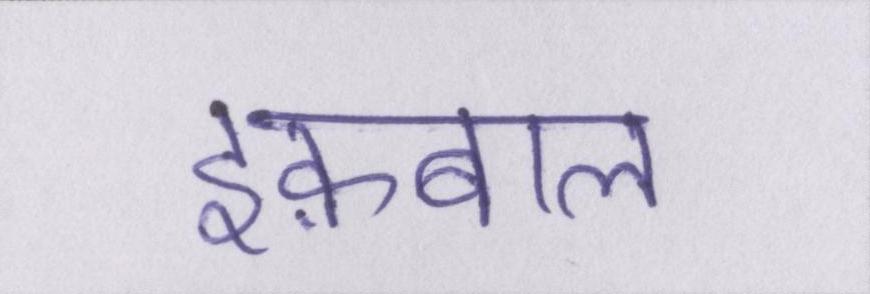 इक़बाल